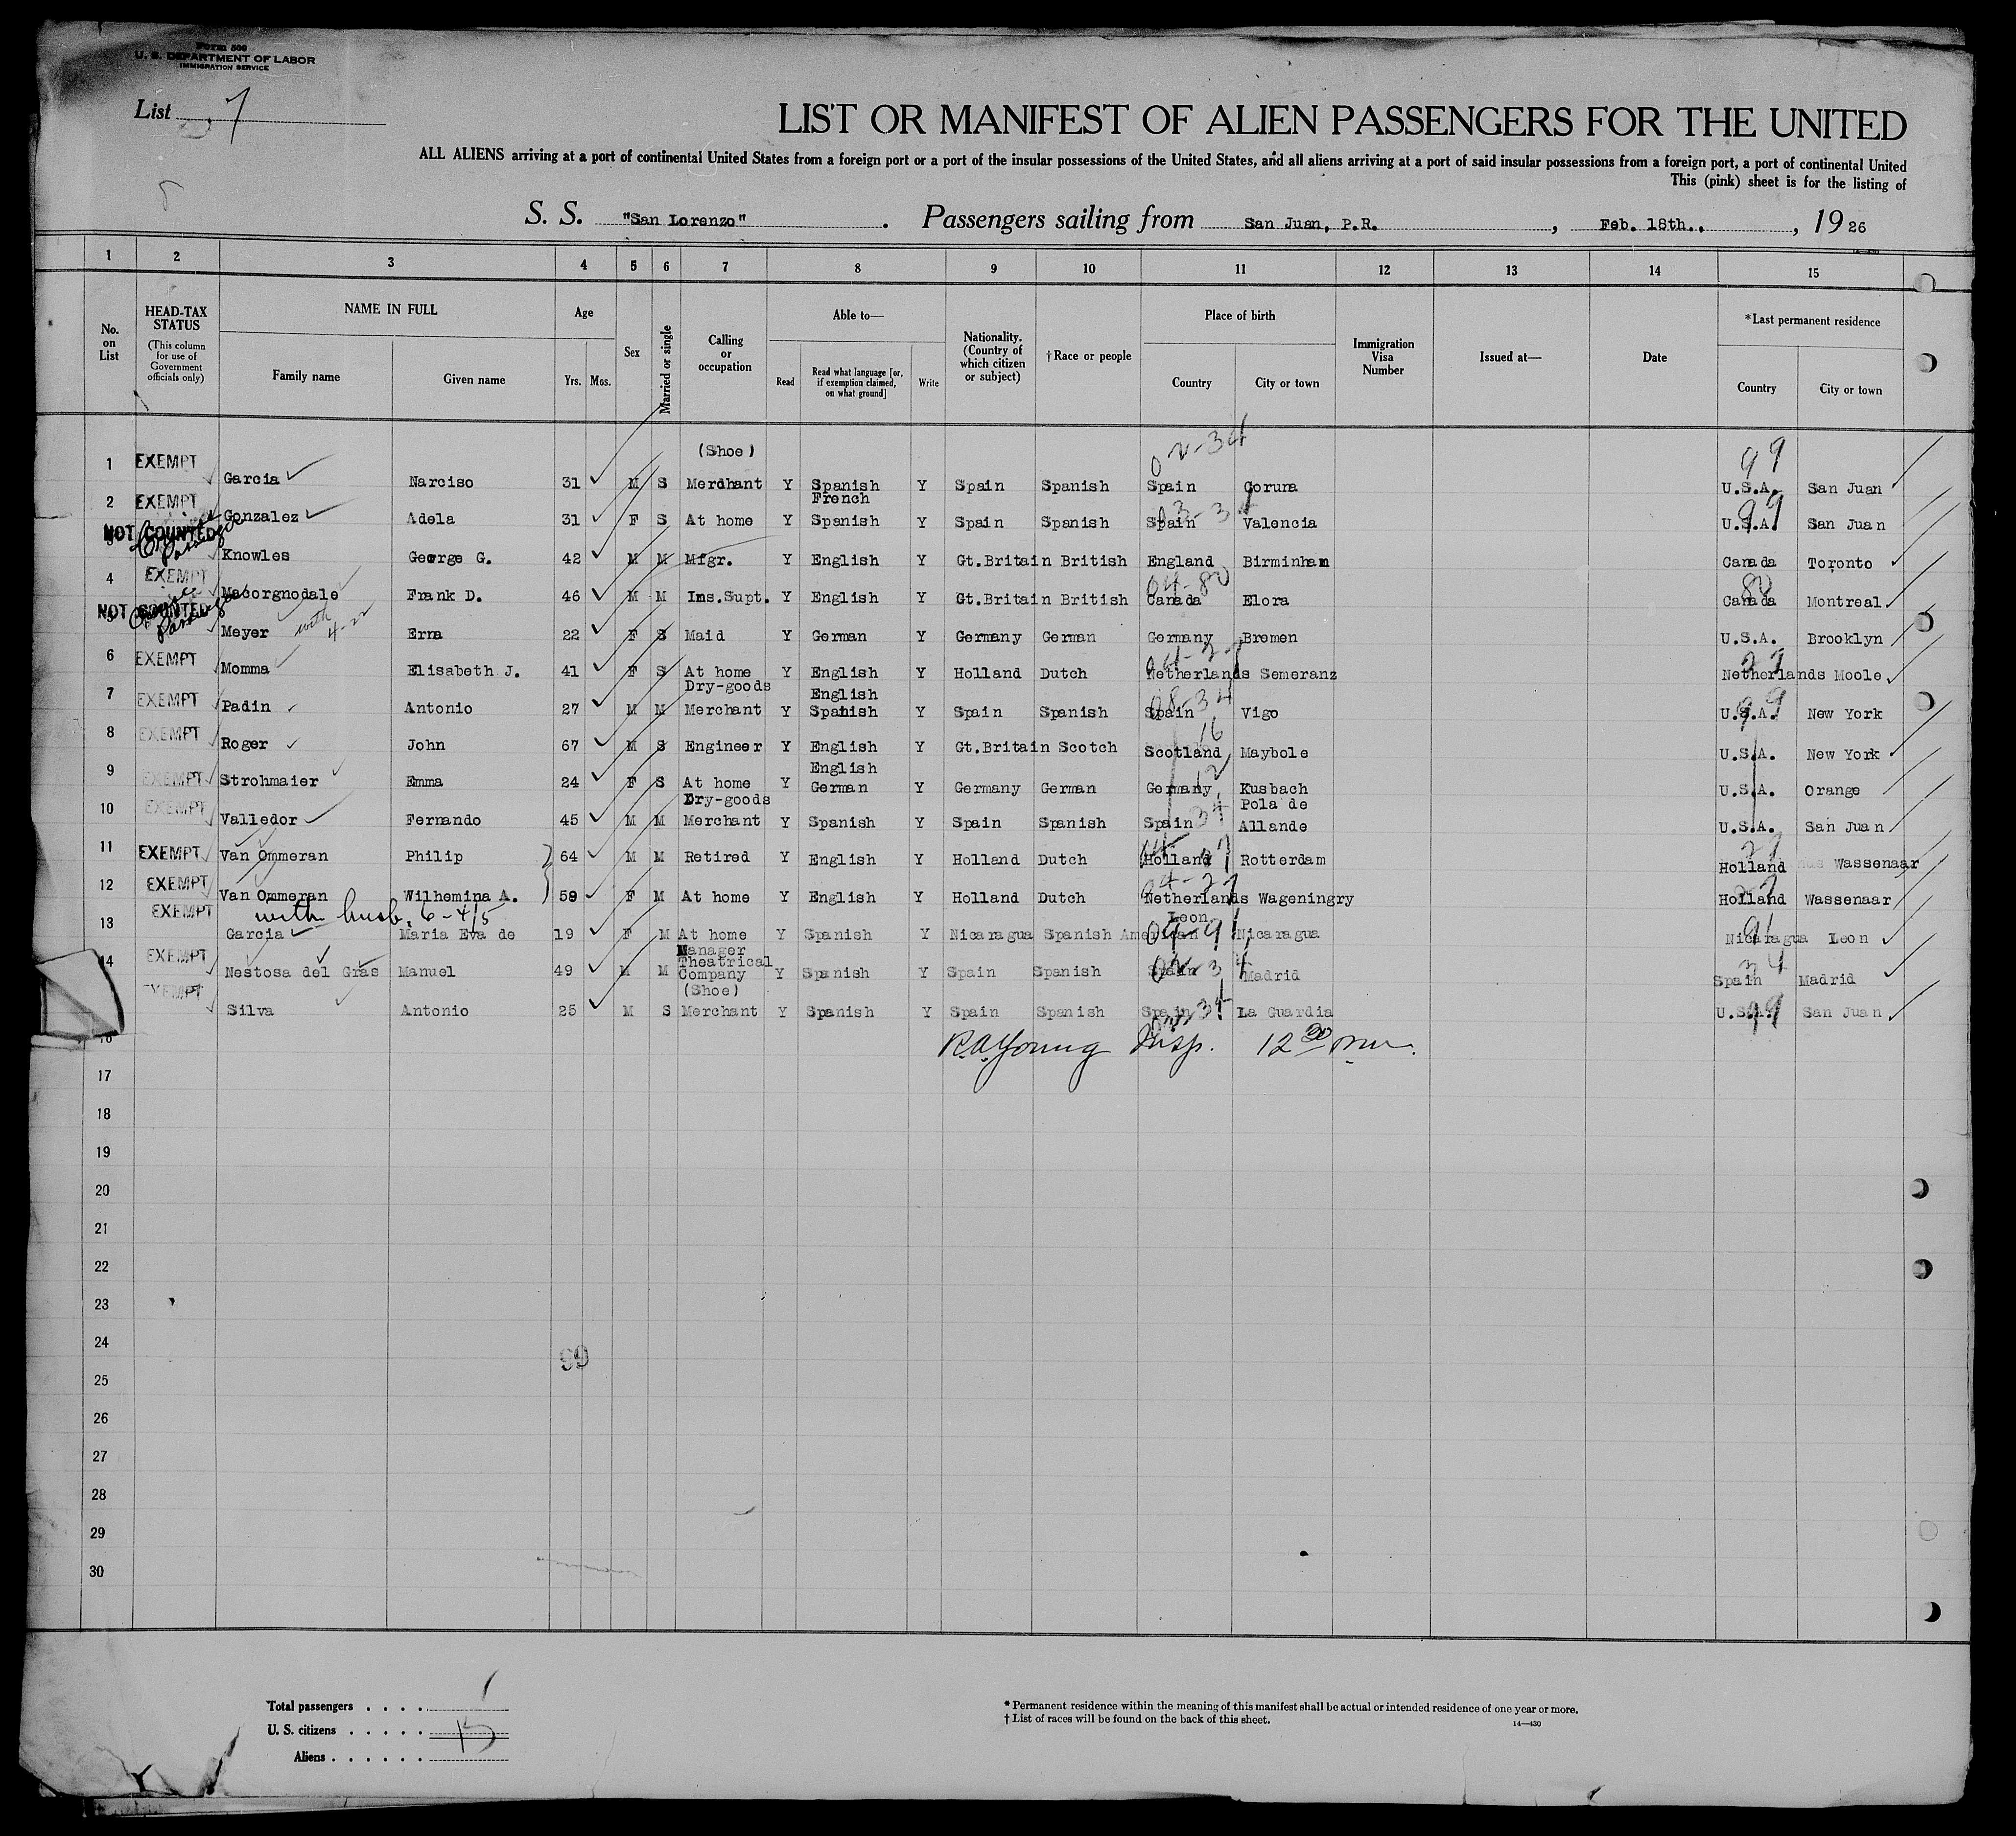 Form 500
U. S. DEPARTMENT OF LABOR
IMMIGRATION SERVICE
List 7
LIST OR MANIFEST OF ALIEN PASSENGERS FOR THE UNITED
ALL ALIENS arriving at a port of continental United States from a foreign port or a port of the insular possessions of the United States, and all aliens arriving at a port of said insular possessions from a foreign port, a port of continental United
This (pink) sheet is for the listing of
S. S. "San Lorenzo". Passengers sailing from San Juan, P.R., Feb. 18th., 1926
1 2 3 4 5 6 7 8 9 10 11 12 13 14 15
No. on List
HEAD-TAX STATUS (This column for use of Government officials only)
NAME IN FULL
Family name Given name
Age
Yrs. Mos.
Sex
Married or single
Calling or occupation
Able to—
Read Read what language [or, if exemption claimed, on what ground] Write
Nationality. (Country of which citizen or subject)
†Race or people
Place of birth
Country City or town
Immigration Visa Number
Issued at—
Date
*Last permanent residence
Country City or town
02-34 99
1 EXEMPT Garcia Narciso 31 M S (Shoe) Merchant Y Spanish French Y Spain Spanish Spain Coruna U.S.A. San Juan
2 EXEMPT Gonzalez Adela 31 F S At home Y Spanish Y Spain Spanish Spain Valencia U.S.A. San Juan
3 NOT COUNTED Knowles George G. 42 M M Mfgr. Y English Y Gt.Britain British England Birminham Canada Toronto
4 EXEMPT Macorgnodale Frank D. 46 M M Ins.Supt. Y English Y Gt.Britain British Canada Elora Canada Montreal
5 NOT COUNTED Meyer with 4-22 Erna 22 F S Maid Y German Y Germany German Germany Bremen U.S.A. Brooklyn
6 EXEMPT Momma Elisabeth J. 41 F S At home Y English Y Holland Dutch Netherlands Semeranz Netherlands Moole
7 EXEMPT Padin Antonio 27 M M Dry-goods Merchant Y English Spanish Y Spain Spanish Spain Vigo U.S.A. New York
8 EXEMPT Roger John 67 M S Engineer Y English Y Gt.Britain Scotch Scotland Maybole U.S.A. New York
9 EXEMPT Strohmaier Emma 24 F S At home Y English German Y Germany German Germany Kusbach U.S.A. Orange
10 EXEMPT Valledor Fernando 45 M M Dry-goods Merchant Y Spanish Y Spain Spanish Spain Pola de Allande U.S.A. San Juan
11 EXEMPT Van Ommeran Philip 64 M M Retired Y English Y Holland Dutch Holland Rotterdam Holland Wassenaar
12 EXEMPT Van Ommeran Wilhemina A. 59 F M At home Y English Y Holland Dutch Netherlands Wageningry Holland Wassenaar
with husb. 6-4/5
13 EXEMPT Garcia Maria Eva de 19 F M At home Y Spanish Y Nicaragua Spanish American Leon Nicaragua Nicaragua Leon
14 EXEMPT Nestosa del Gras Manuel 49 M M Manager Theatrical Company Y Spanish Y Spain Spanish Spain Madrid Spain Madrid
EXEMPT Silva Antonio 25 M S (Shoe) Merchant Y Spanish Y Spain Spanish Spain La Guardia U.S.A. San Juan
16 R.A. Young Insp. 12 30 pm.
17
18
19
20
21
22
23
24
99
25
26
27
28
29
30
Total passengers
U. S. citizens 15
Aliens
* Permanent residence within the meaning of this manifest shall be actual or intended residence of one year or more.
† List of races will be found on the back of this sheet.
14—430